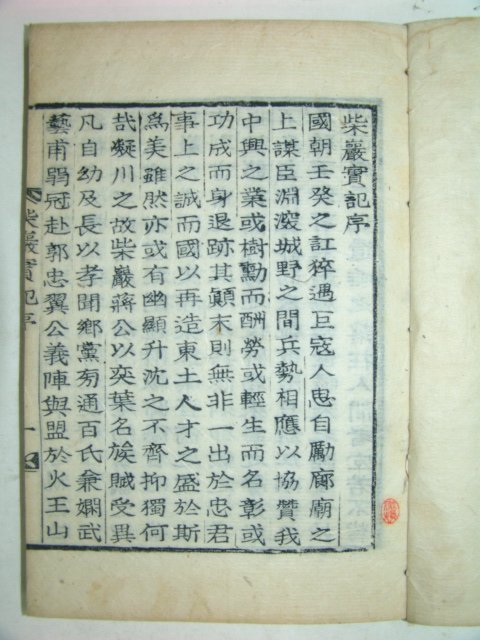 柴巖實記序
國朝壬癸之訌猝遇巨寇人思自勵廊廟之
上謀臣淵深城野之間兵勢相應以協贊我
中興之業或樹勳而酬勞或輕生而名彰或
功成而身退跡其顚末則無非一出於忠君
事上之誠而國以再造東土人才之盛於斯
爲美雖然亦或有幽顯升沈之不齊抑獨何
哉凝川之故柴巖蔣公以奕葉名族賦受異
凡自幼及長以孝聞鄕黨旁通百氏兼嫺武
藝甫弱冠赴郭忠翼公義陣與盟於火王山
柴巖實記序
一